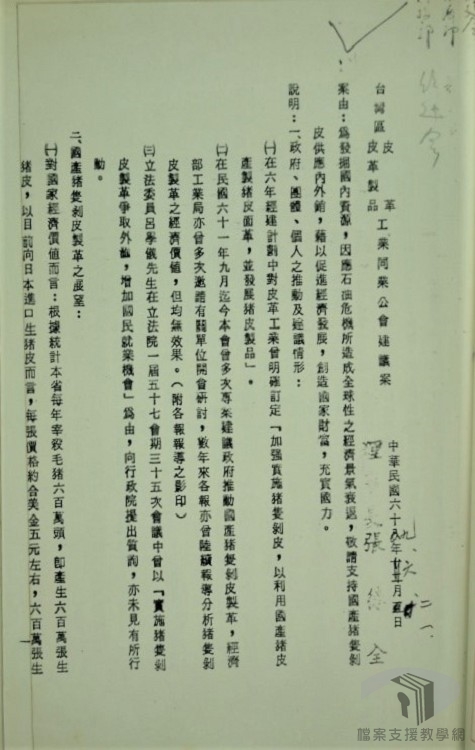 台灣區皮革皮革製品工業同業公會建議案
中華民國六十八年
張
全
案由：為發掘國內資源，因應石油危機所造成全球性之經濟景氣衰退，敬請支持國產豬隻剝
皮供應內外銷，藉以促進經濟發展，創造國家財富，充實國力。
說明：一、政府、團體、個人之推動及建議情形：
㈠在六年經建計劃中對皮革工業曾明確訂定「加强實施豬隻剝皮，以利用國產豬皮
產製豬皮面革，並發展豬皮製品」。
㈡在民國六十一年九月迄今本會曾多次專案建議政府推動國產豬隻剝皮製革，經濟
部工業局亦曾多次邀請有關單位開會研討，數年來各報亦曾陸續報導分析豬隻剝
皮製革之經濟價值，但均無效果。（附各報報導之影印）
㈢立法委員呂學儀先生在立法院一屆五十七會期三十五次會議中曾以「實施豬隻剝
皮製革爭取外匯，增加國民就業機會」為由，向行政院提出質詢，亦未見有所行
動。
二、國產豬隻剝皮製革之展望：
㈠對國家經濟價值而言：根據統計本省每年宰殺毛豬六百萬頭，即產生六百萬張生
豬皮，以目前向日本進口生豬皮而言，每張價格約合美金五元左右，六百萬張生
檔案支援教學網